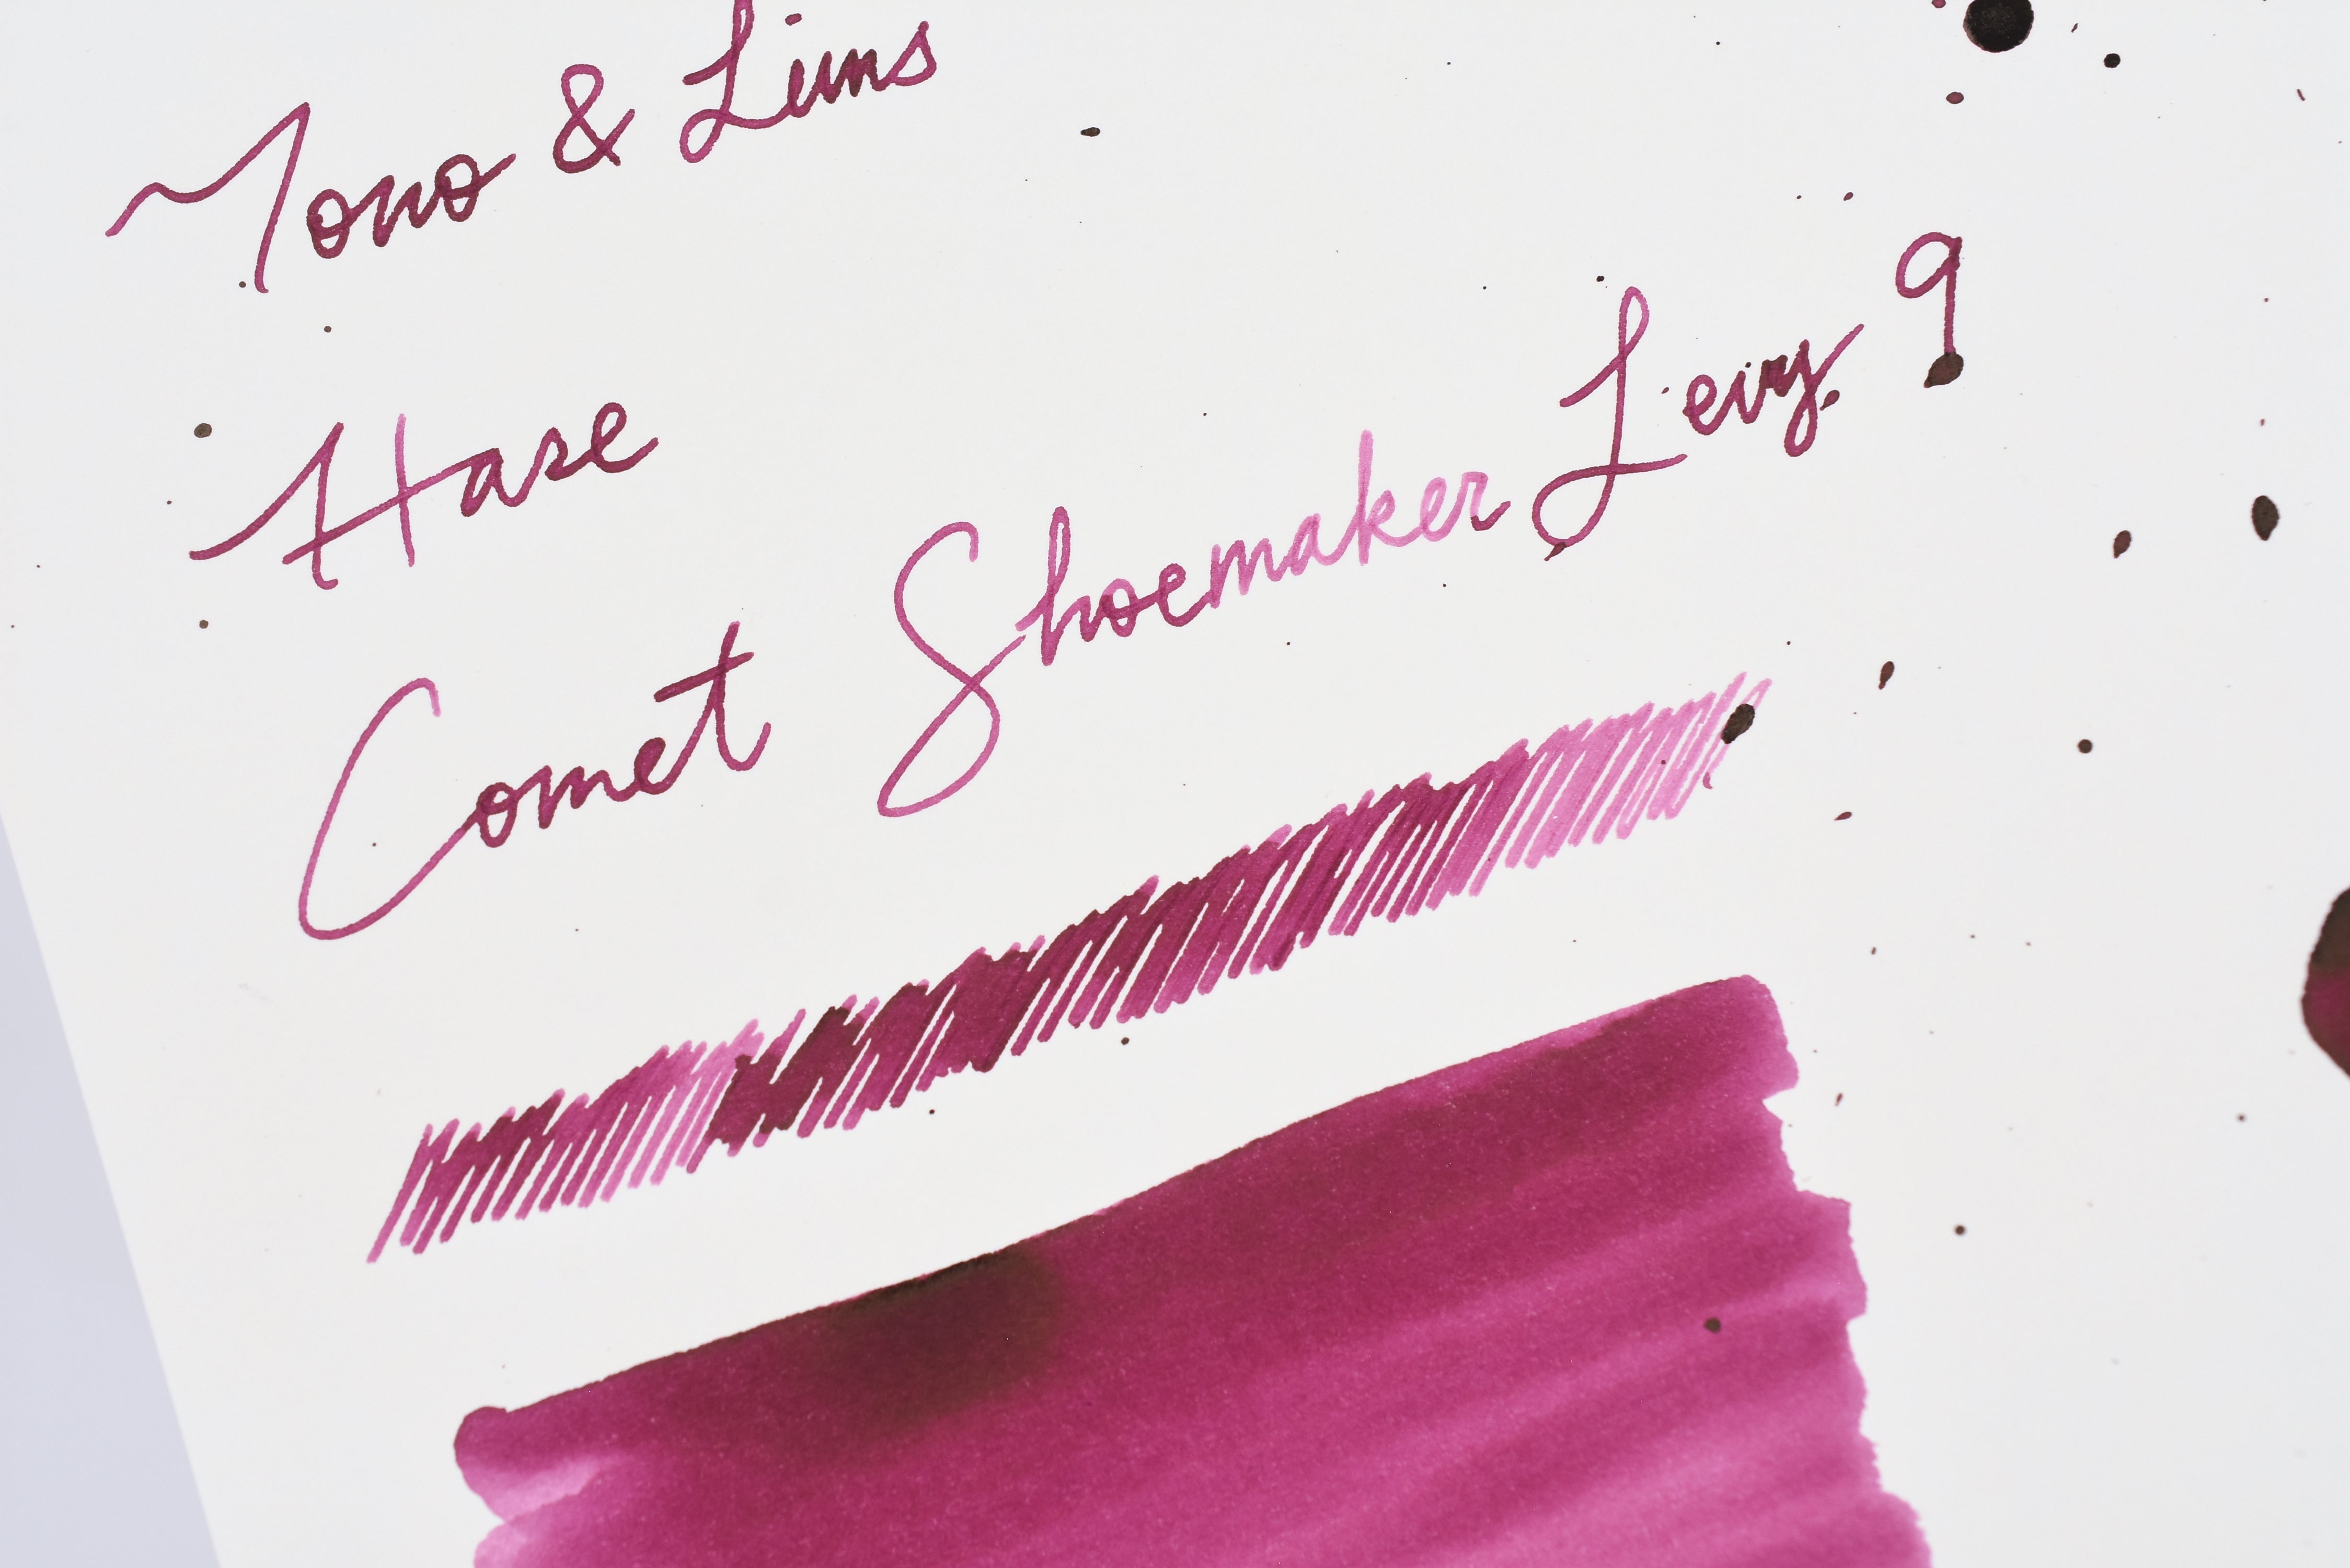 Tono & Lims
Haze
Comet Shoemaker Levy. 9